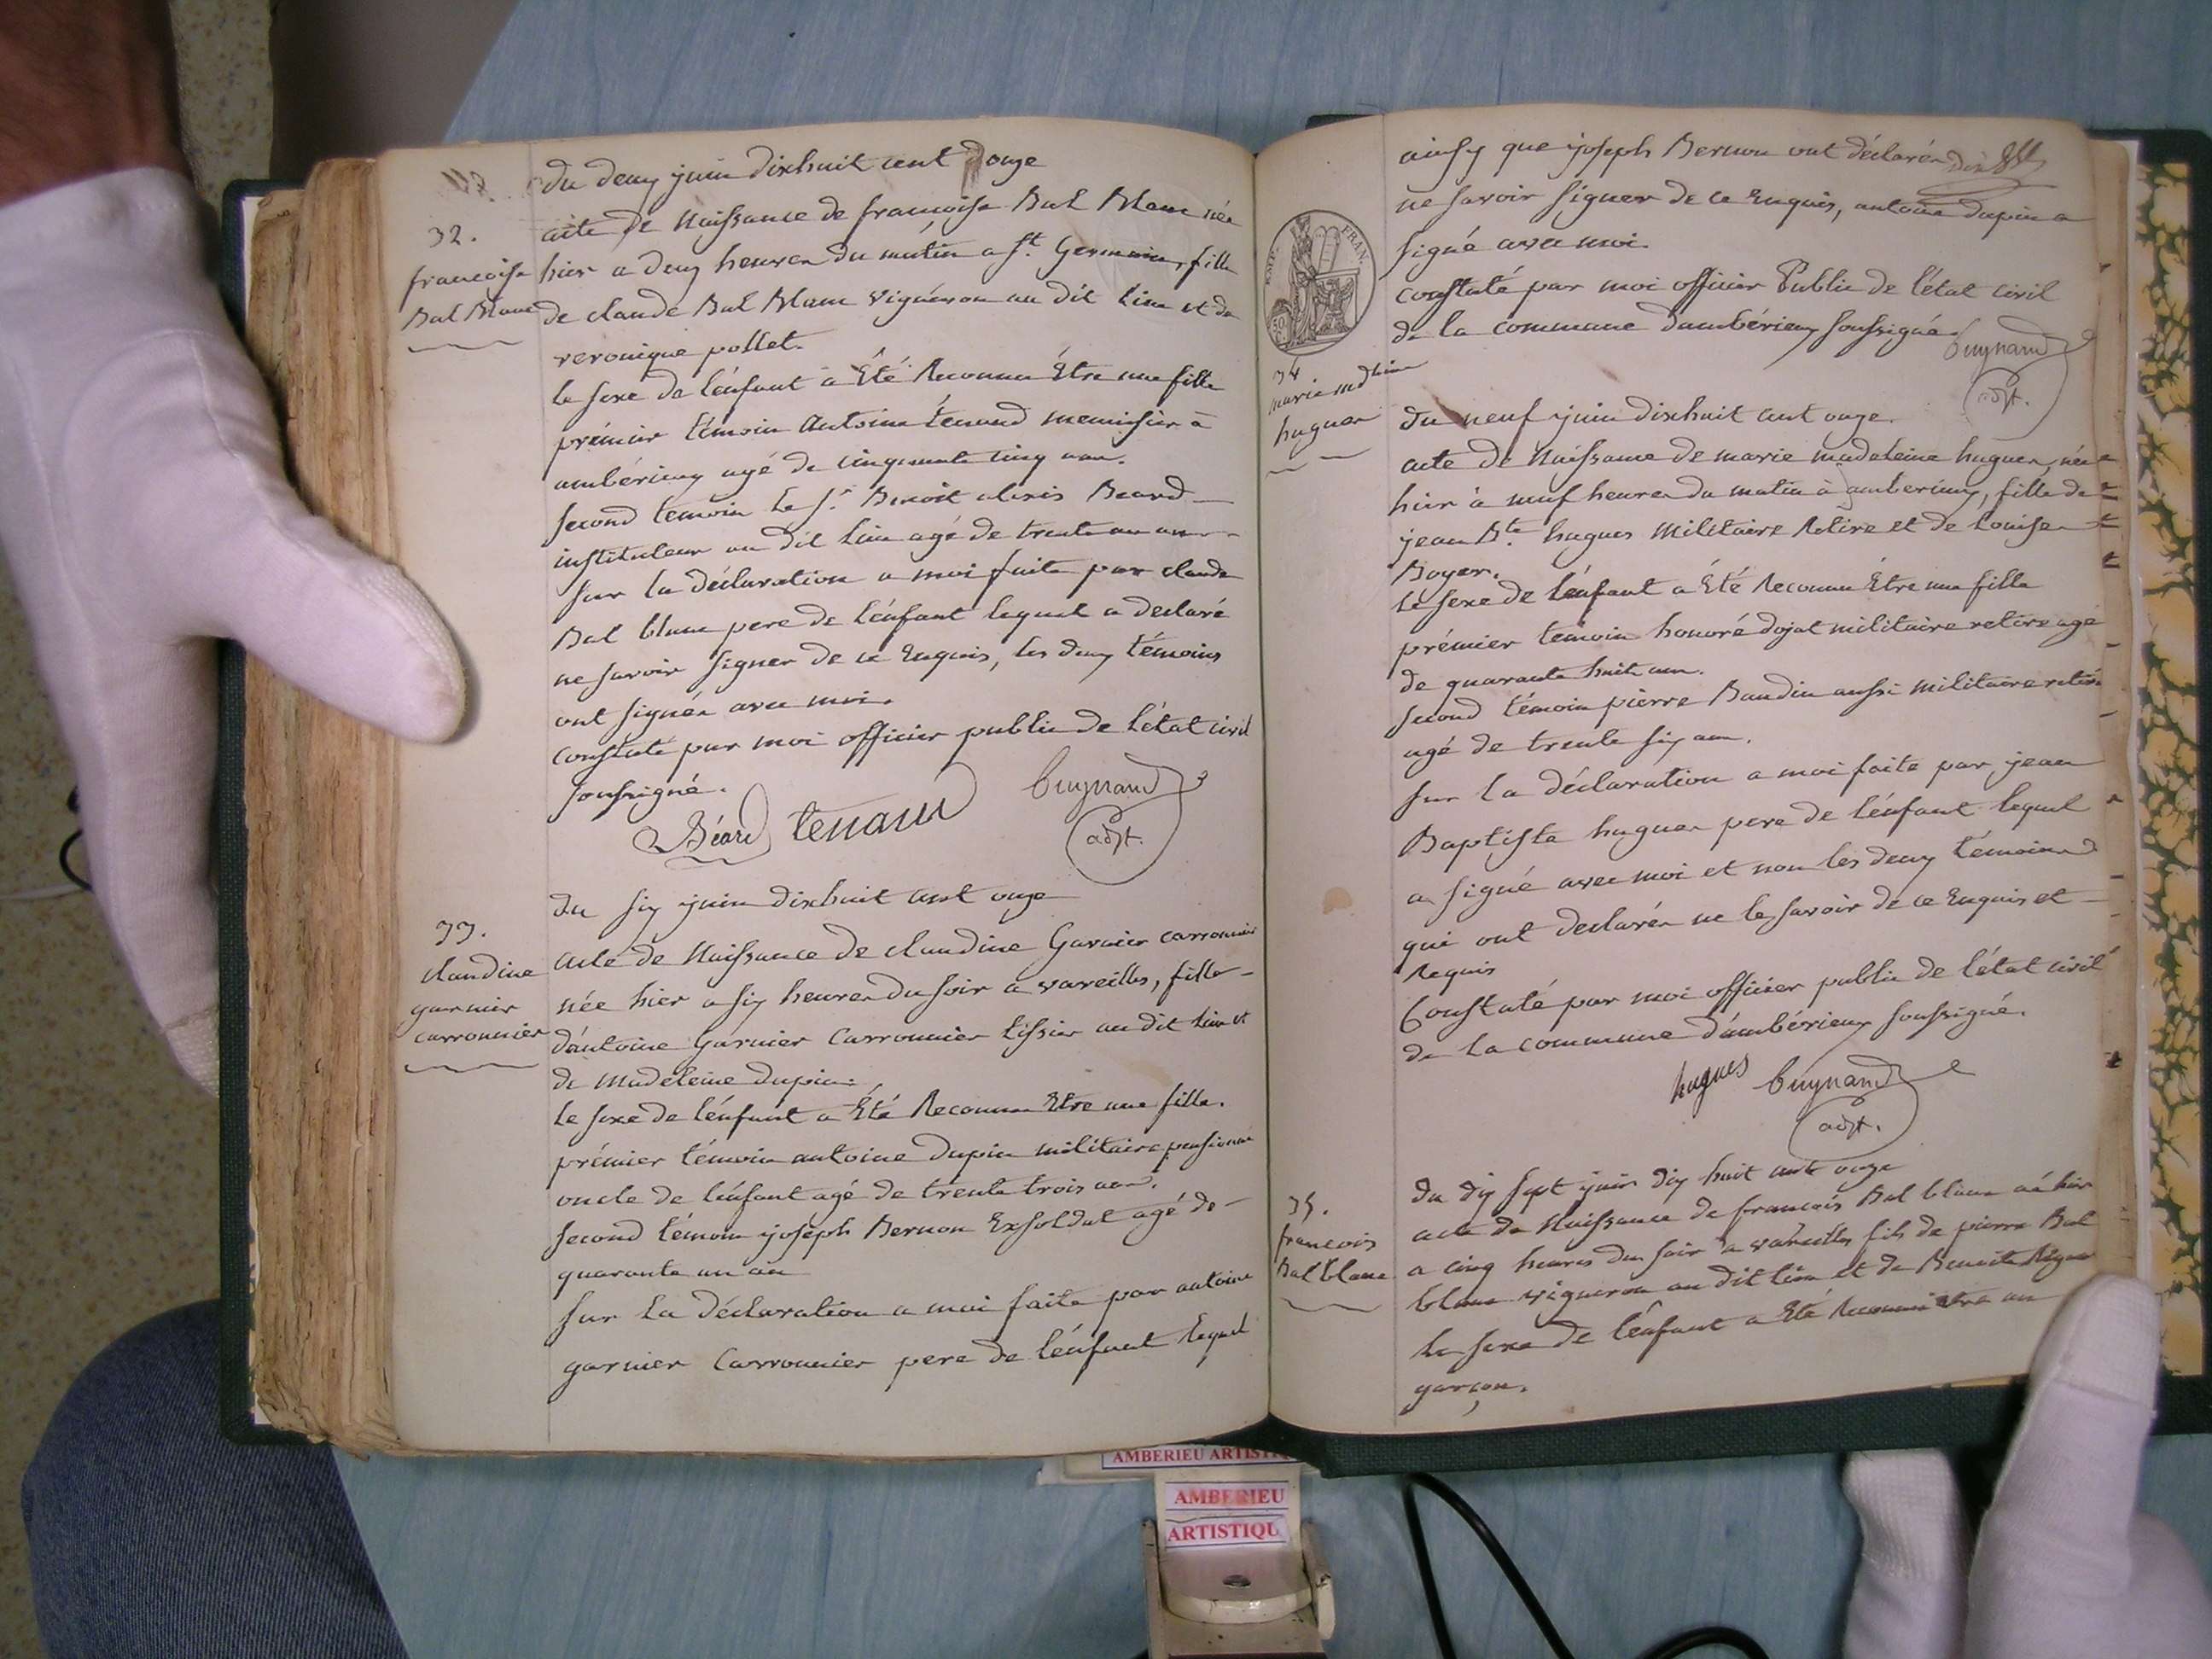 du deux juin dixhuit cent onze
32.
francoise
Bal Blanc
acte de Naissance de françoise Bal Blanc née
hier a deux heures du matin a St. Germain, fille
de claude Bal Blanc vignéron au dit lieu et de
veronique pollet.
le sexe de l'énfant a Été Reconnu Être une fille
prémier témoin Antoine ténand menuisier à
ambérieux agé de cinquante cinq ans.
second temoin le Sr. Benoît alexis Beard
instituteur au dit lieu agé de trente un ans
sur la déclaration a moi faite par claude
Bal blanc pere de l'énfant lequel a declaré
ne savoir signer de ce Enquis, les deux témoins
ont signés avec moi.
constaté par moi officier public de l'état civil
soussigné.
Béard tenand buynand
adjt.
du six juin dixhuit cent onze
33.
claudine
garnier
carronnier
acte de Naissance de claudine Garnier carronnier
née hier a six heures du soir a vareilles, fille
d'antoine Garnier Carronnier tissier au dit lieu et
de madeleine dupin.
le sexe de l'énfant a Été Reconnu Etre une fille.
prémier témoin antoine dupin militaire pensionné
oncle de l'énfant agé de trente trois ans.
second témoin joseph Bernon Exsoldat agé de
quarante un an
sur la déclaration a moi faite par antoine
garnier Carronnier pere de l'énfant lequel
ainsy que joseph Bernon ont déclarés
ne savoir signer de ce Enquis, antoine dupin a
signé avec moi.
constaté par moi officier Public de l'état civil
de la commune d'ambérieux soussigné.
buynand
adjt.
EMP. FRAN.
34
marie mdleine
hugues
du neuf juin dixhuit cent onze.
acte de Naissance de marie madeleine hugues, née
hier à neuf heures du matin à amberieux, fille de
jean Bte. hugues Militaire Retire et de Louise
Boyer.
le sexe de l'énfant a Été Reconnu Être une fille
prémier temoin honoré dojat militaire retire agé
de quarante huit ans.
second témoin pierre Baudin aussi militaire retiré
agé de trente six ans.
sur la déclaration a moi faite par jean
Baptiste hugues pere de l'énfant lequel
a signé avec moi et non les deux témoins
qui ont declarés ne le savoir de ce Enquis et
Requis
Constaté par moi officier public de l'état civil
de la commune d'ambérieux soussigné.
hugues buynand
adjt.
35.
francois
Bal blanc
du dix sept juin dix huit cent onze
acte de Naissance de francois Bal blanc né hier
a cinq heures du soir a vareilles fils de pierre Bal
blanc vigneron au dit lieu et de Benoite
le sexe de l'énfant a Eté Reconnu etre un
garçon.
AMBERIEU ARTISTI
AMBERIEU
ARTISTIQU